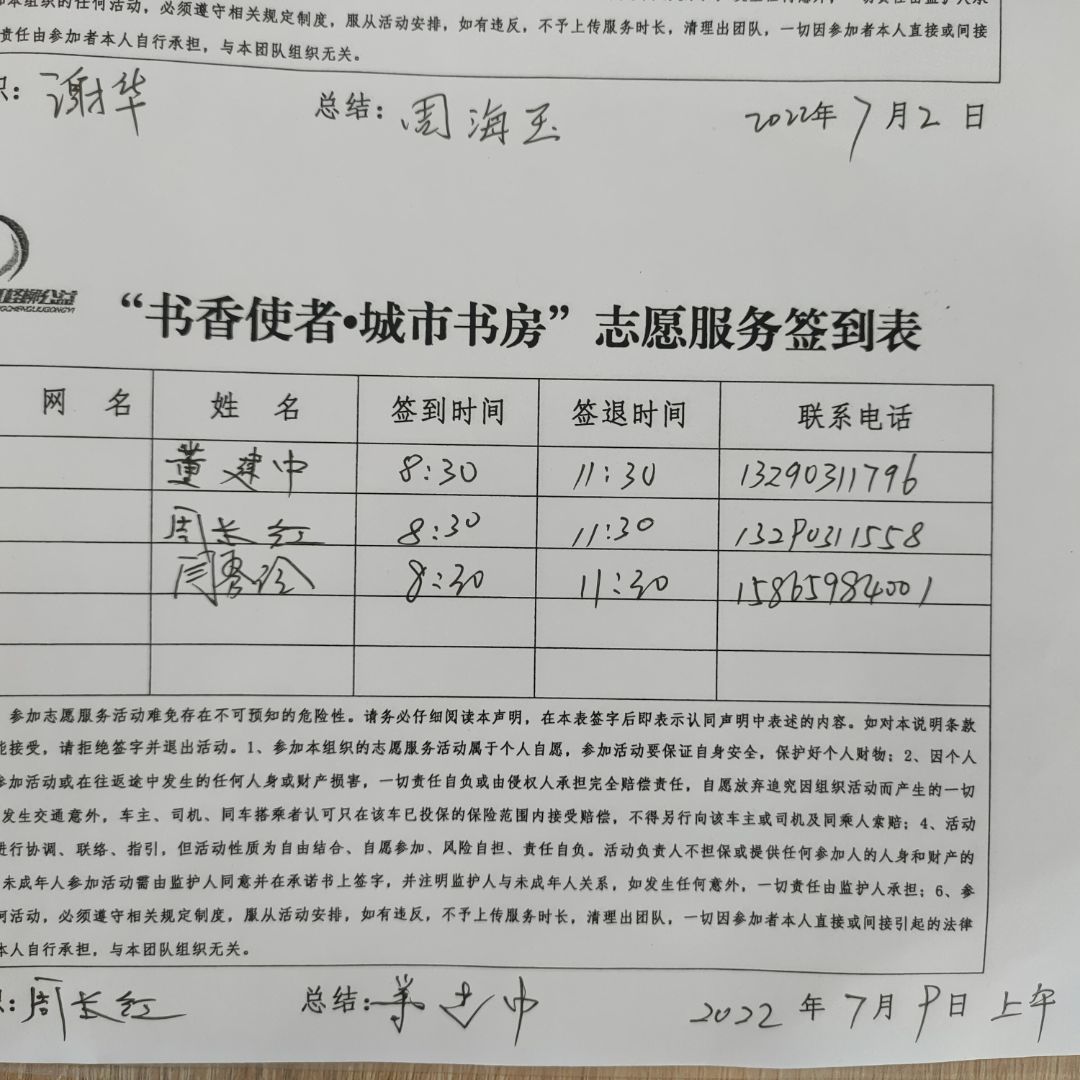 本组织的任何活动，必须遵守相关规定制度，服从活动安排，如有违反，不予上传服务时长，清理出团队，一切因参加者本人直接或间接
责任由参加者本人自行承担，与本团队组织无关。
织：谢华 总结：周海玉 2022年7月2日
“书香使者•城市书房”志愿服务签到表
网 名 姓 名 签到时间 签退时间 联系电话
董建中 8:30 11:30 13290311796
周长红 8:30 11:30 13290311558
闫秀玲 8:30 11:30 15865984001
参加志愿服务活动难免存在不可预知的危险性。请务必仔细阅读本声明，在本表签字后即表示认同声明中表述的内容。如对本说明条款
能接受，请拒绝签字并退出活动。1、参加本组织的志愿服务活动属于个人自愿，参加活动要保证自身安全，保护好个人财物；2、因个人
参加活动或在往返途中发生的任何人身或财产损害，一切责任自负或由侵权人承担完全赔偿责任，自愿放弃追究因组织活动而产生的一切
发生交通意外，车主、司机、同车搭乘者认可只在该车已投保的保险范围内接受赔偿，不得另行向该车主或司机及同乘人索赔；4、活动
进行协调、联络、指引，但活动性质为自由结合、自愿参加、风险自担、责任自负。活动负责人不担保或提供任何参加人的人身和财产的
未成年人参加活动需由监护人同意并在承诺书上签字，并注明监护人与未成年人关系，如发生任何意外，一切责任由监护人承担；6、参
何活动，必须遵守相关规定制度，服从活动安排，如有违反，不予上传服务时长，清理出团队，一切因参加者本人直接或间接引起的法律
本人自行承担，与本团队组织无关。
织：周长红 总结：董建中 2022年7月9日上午